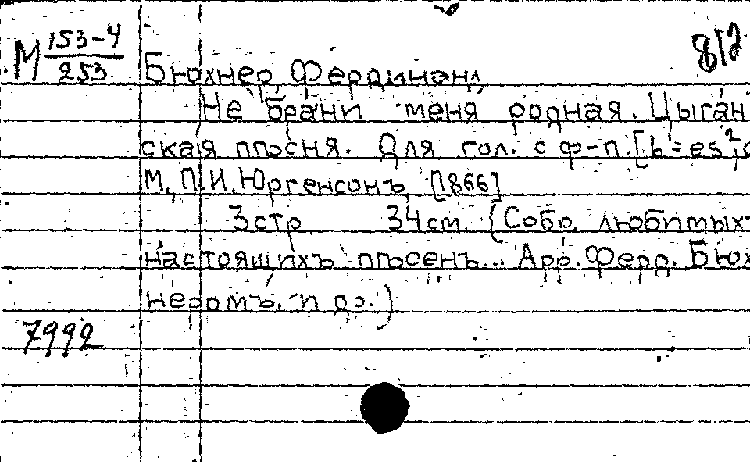 М 153-4/253
812
Бюхнер, Фердинанд
Не брани меня родная. Цыган
ская пѣсня. Для гол. с ф-п. [h=es²;
М., П.И. Юргенсонъ, [1866]
3 стр 34 см (Собр. любимых
настоящихъ пѣсенъ... Арр. Ферд. Бюх
неромъ. и др.)
7992